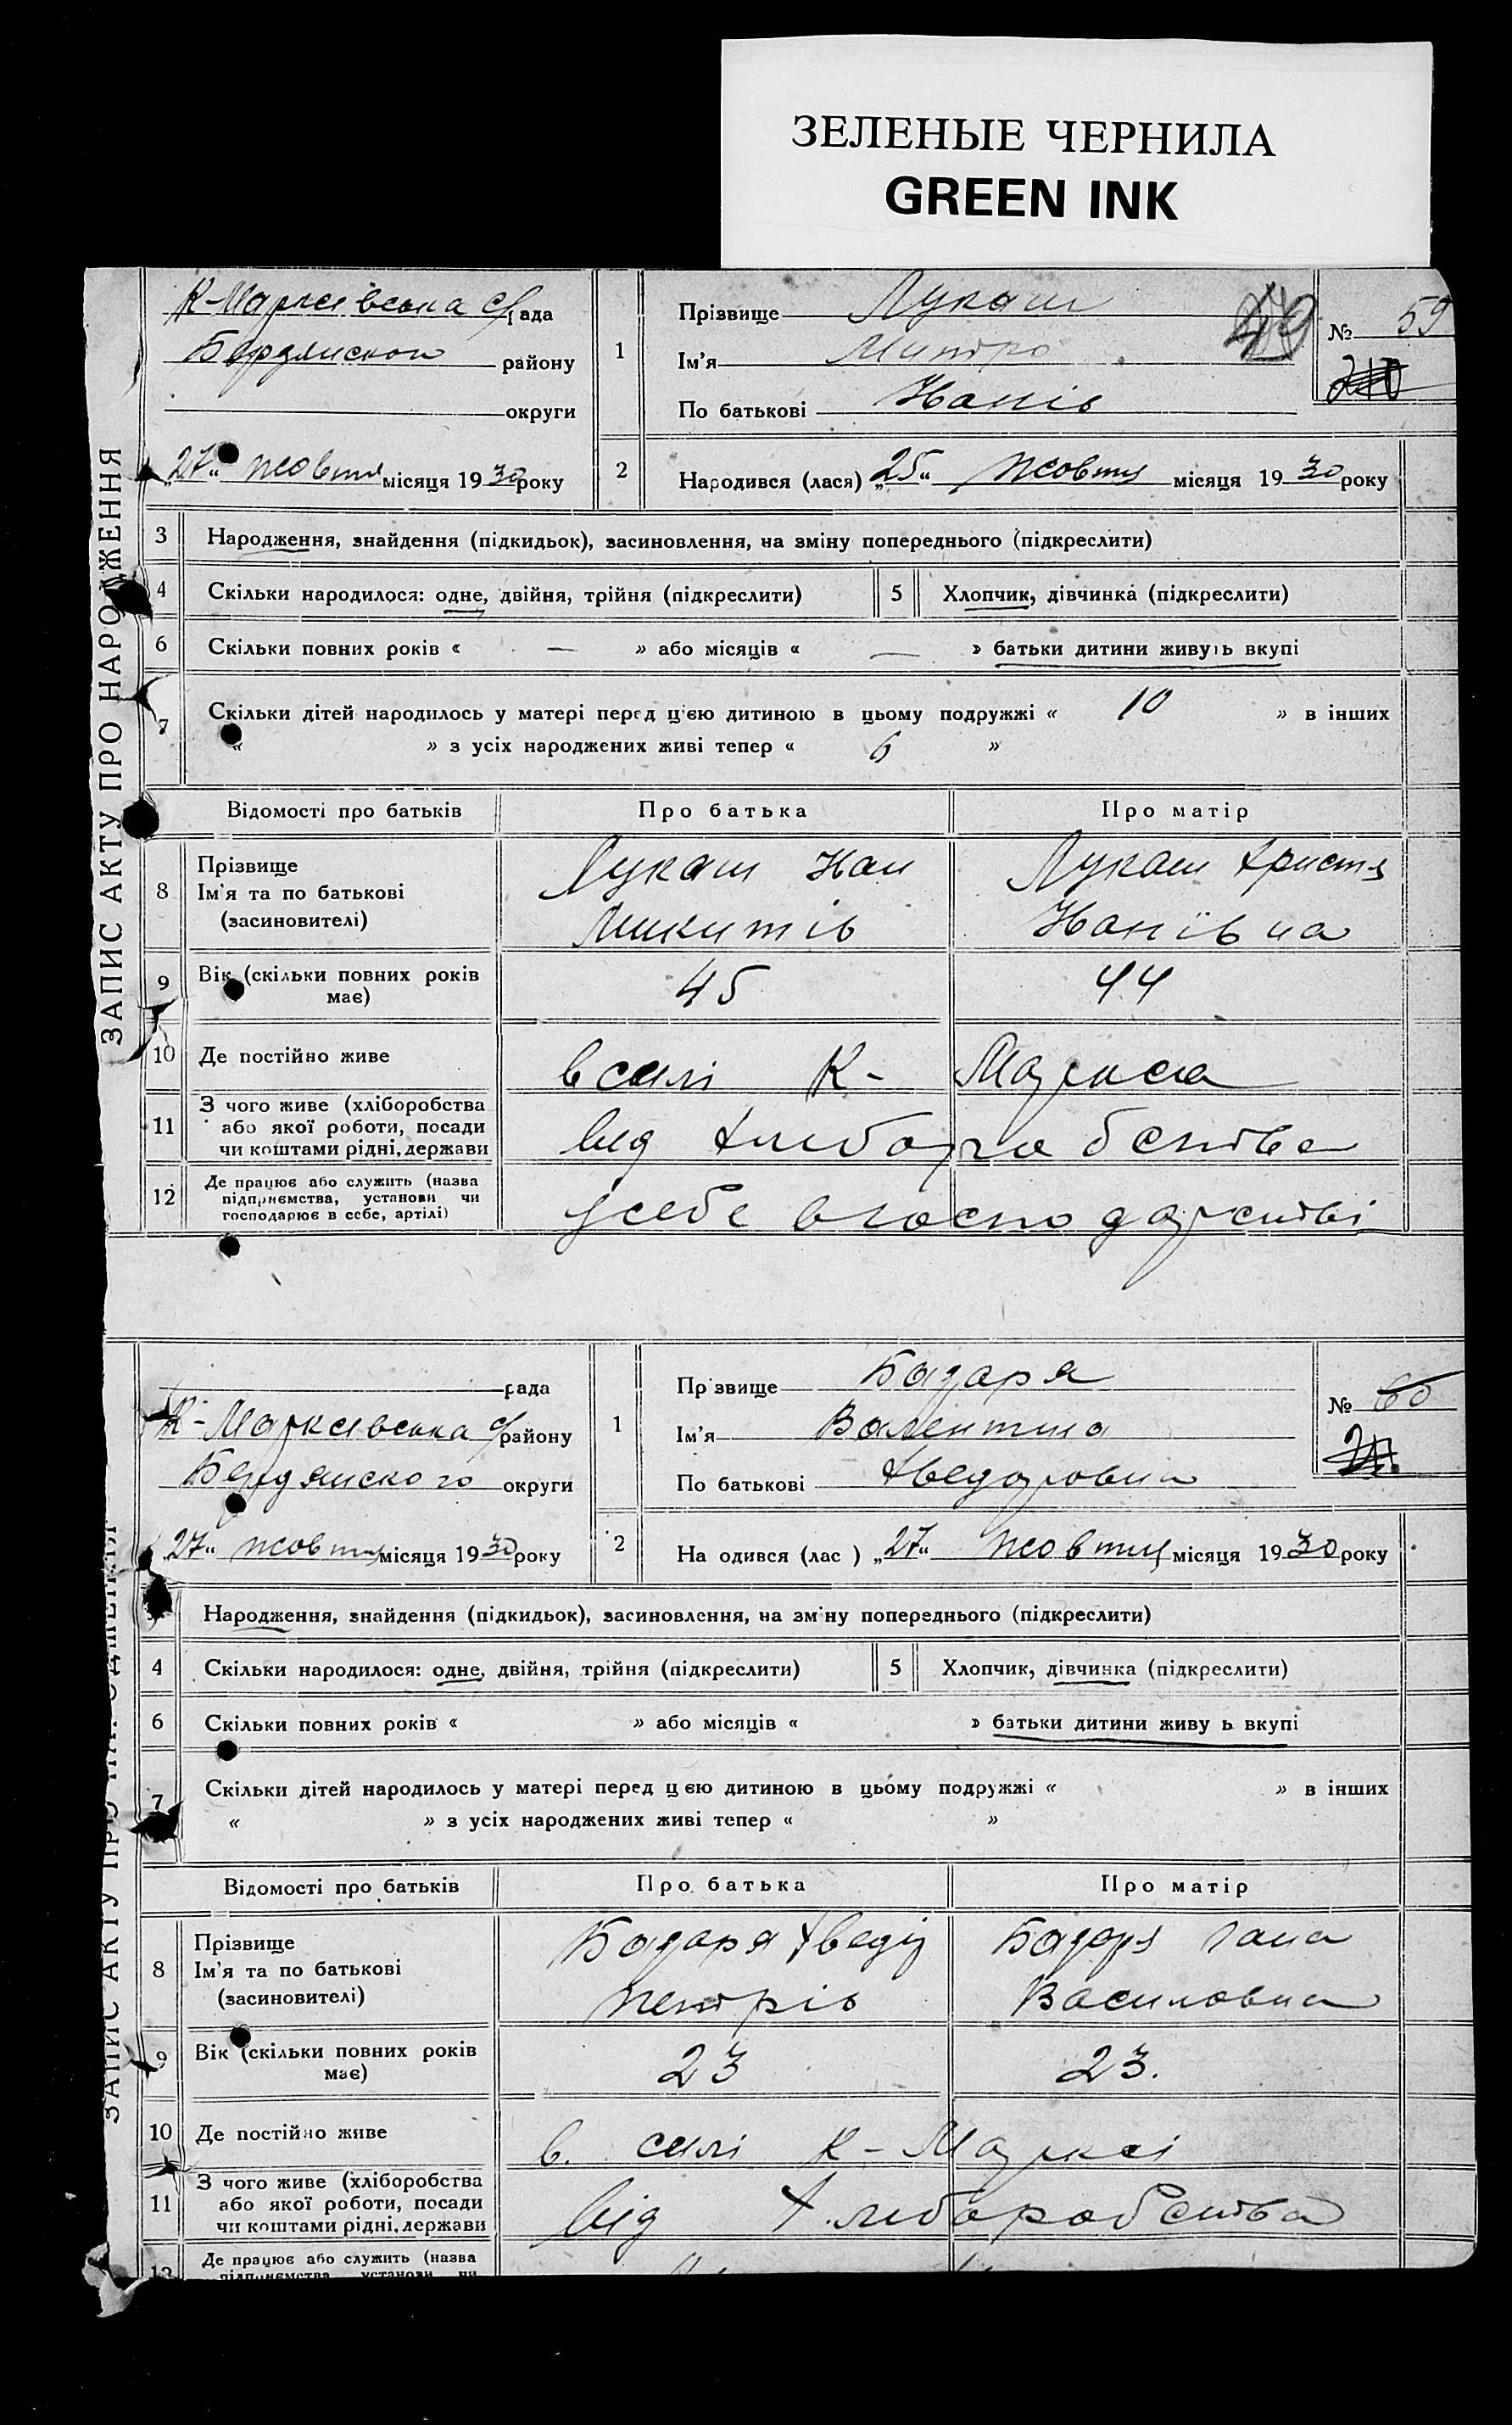 ЗЕЛЕНЫЕ ЧЕРНИЛА
GREEN INK
ЗАПИС АКТУ ПРО НАРОДЖЕННЯ
К-Марксівська с/рада
району
округи
„27“ жовтня місяця 1930 року
1
Прізвище Лукаш
Ім'я Митро
По батькові Нанів
49
№ 59
210
2
Народився (лася) „25“ жовтня місяця 1930 року
3 Народження, знайдення (підкидьок), засиновлення, на зміну попереднього (підкреслити)
4 Скільки народилося: одне, двійня, трійня (підкреслити) 5 Хлопчик, дівчинка (підкреслити)
6 Скільки повних років « — » або місяців « — » батьки дитини живуть вкупі
7 Скільки дітей народилось у матері перед цією дитиною в цьому подружжі « 10 » в інших
« » з усіх народжених живі тепер « 6 »
Відомості про батьків Про батька Про матір
8 Прізвище
Ім'я та по батькові
(засиновителі)
Лукаш Нан
Микитів
Лукаш Христя
Нанівна
9 Вік (скільки повних років
має)
45 44
10 Де постійно живе
в селі К- Маркса
11 З чого живе (хліборобства
або якої роботи, посади
чи коштами рідні, держави
від хліборобства
12 Де працює або служить (назва
підприємства, установи чи
господарює в себе, артілі)
у себе в господарстві
ЗАПИС АКТУ ПРО НАРОДЖЕННЯ
рада
К-Марксівська с/району
Бердянского округи
„27“ жовтня місяця 1930 року
1
Пр звище Бадаря
Ім'я Валентина
По батькові Хведоровна
№ 60
2
На одився (лас ) „27“ жовтня місяця 1930 року
Народження, знайдення (підкидьок), засиновлення, на зм ну попереднього (підкреслити)
4 Скільки народилося: одне, двійня, трійня (підкреслити) 5 Хлопчик, дівчинка (підкреслити)
6 Скільки повних років « » або місяців « » батьки дитини живу ь вкупі
7 Скільки дітей народилось у матері перед ц єю дитиною в цьому подружжі « » в інших
« » з усіх народжених живі тепер « »
Відомості про батьків Про батька Про матір
8 Прізвище
Ім'я та по батькові
(засиновителі)
Бадаря Хведір
Петрів
Бадаря Гана
Василовна
9 Вік (скільки повних років
має)
23 23.
10 Де постійно живе
в. селі К-Марксі
11 З чого живе (хліборобства
або якої роботи, посади
чи коштами рідні, держави
від хліборобства
12 Де працює або служить (назва
підприємства установи чи